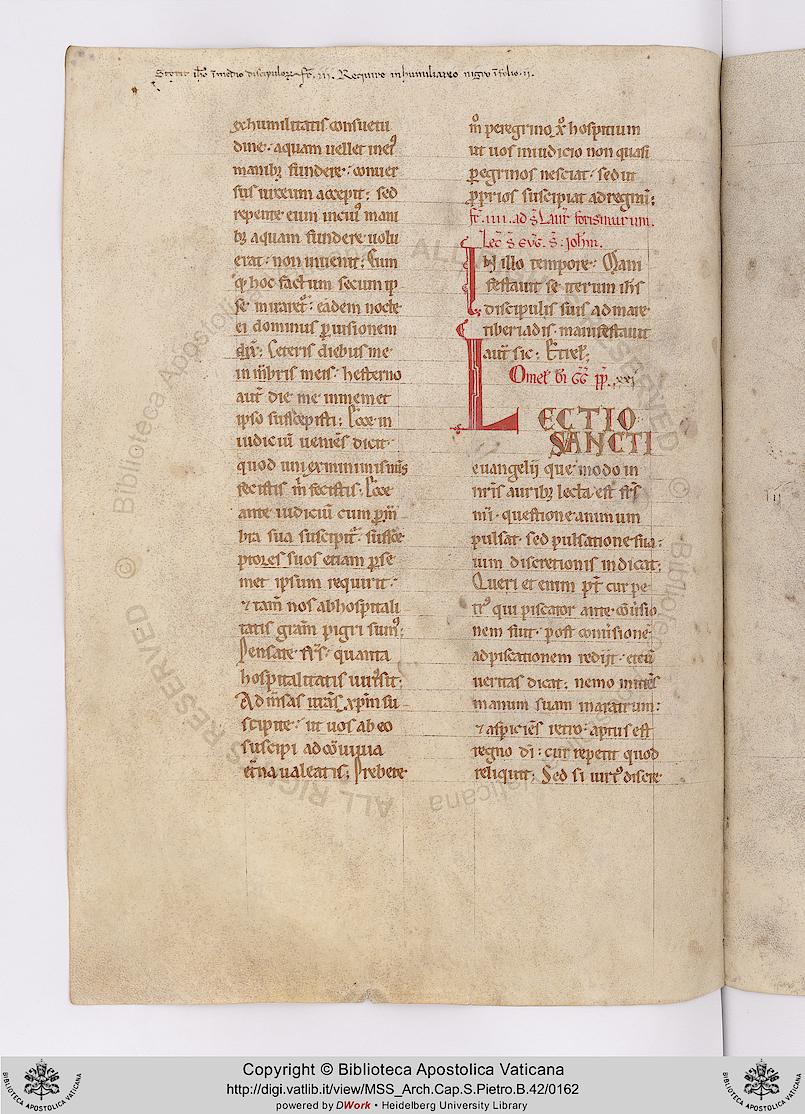 Stetit ih̄c ī medio discipulorꝝ. fr̄. iii. Require in humiliareo nigro ī folio. ii.
ex humilitatis consuetu
dine· aquam uellet in eiꝰ
manibꝫ fundere· conuer
sus urceum accepit; sed
repente eum in cuiꝰ mani
bꝫ aquam fundere uolu
erat· non inuenit; Cum
qꝫ hoc factum secum ip
se miraret᷑· eadem nocte
ei dominus ꝑ uisionem
dixit; Ceteris diebus me
in mēbris meis· hesterno
aut̄ die me in memet
ipso suscepisti; Ecce in
iudiciū ueniēs dicit·
quod uni ex minimis meis
fecistis m̄ fecistis; Ecce
ante iudiciū cum ꝑ mē
bra sua suscipit᷑· suscep
ptores suos etiam ꝑ se
met ipsum requirit·
⁊ tam̄ nos ab hospitali
tatis gratiam pigri sumꝰ;
Pensate fr̄s· quanta
hospitalitatis uirtꝰ sit;
Ad mēsas ur̄as xp̄m su
scipite· ut uos ab eo
suscipi ad cōuiuia
et̄na ualeatis; Prebete
m̊ peregrino xp̊ hospitium
ut uos in iudicio non quasi
ꝑegrinos nesciat· sed ut
ꝓprios suscipiat ad regnū;
fr̄. iiii. ad s̄. Laur̄ foris murum.
Lec̄. s̄. evḡ. s̄. Joh̄m.
In illo tempore· Mani
festauit se iterum ih̄s
discipulis suis ad mare
tiberiadis· manifestauit
aut̄ sic; Et rel̄;
Omel̄. bī GG̅ pp̄. xxi
LECTIO
SANCTI
euangelij que modo in
nr̄is auribꝫ lecta est fr̄s
mī· questione animum
pulsat· sed pulsatione sua·
uim discretionis indicat;
Queri et enim pt̄ cur pe
trꝰ qui piscator ante cōuersio
nem fuit· post conuersionē
ad piscationem redijt· et cū
ueritas dicat; nemo mittēs
manum suam in aratrum·
⁊ aspiciēs retro· aptus est
regno dī· cur repetit quod
reliquit; Sed si uirtꝰ discre
Copyright © Biblioteca Apostolica Vaticana
http://digi.vatlib.it/view/MSS_Arch.Cap.S.Pietro.B.42/0162
powered by DWork • Heidelberg University Library